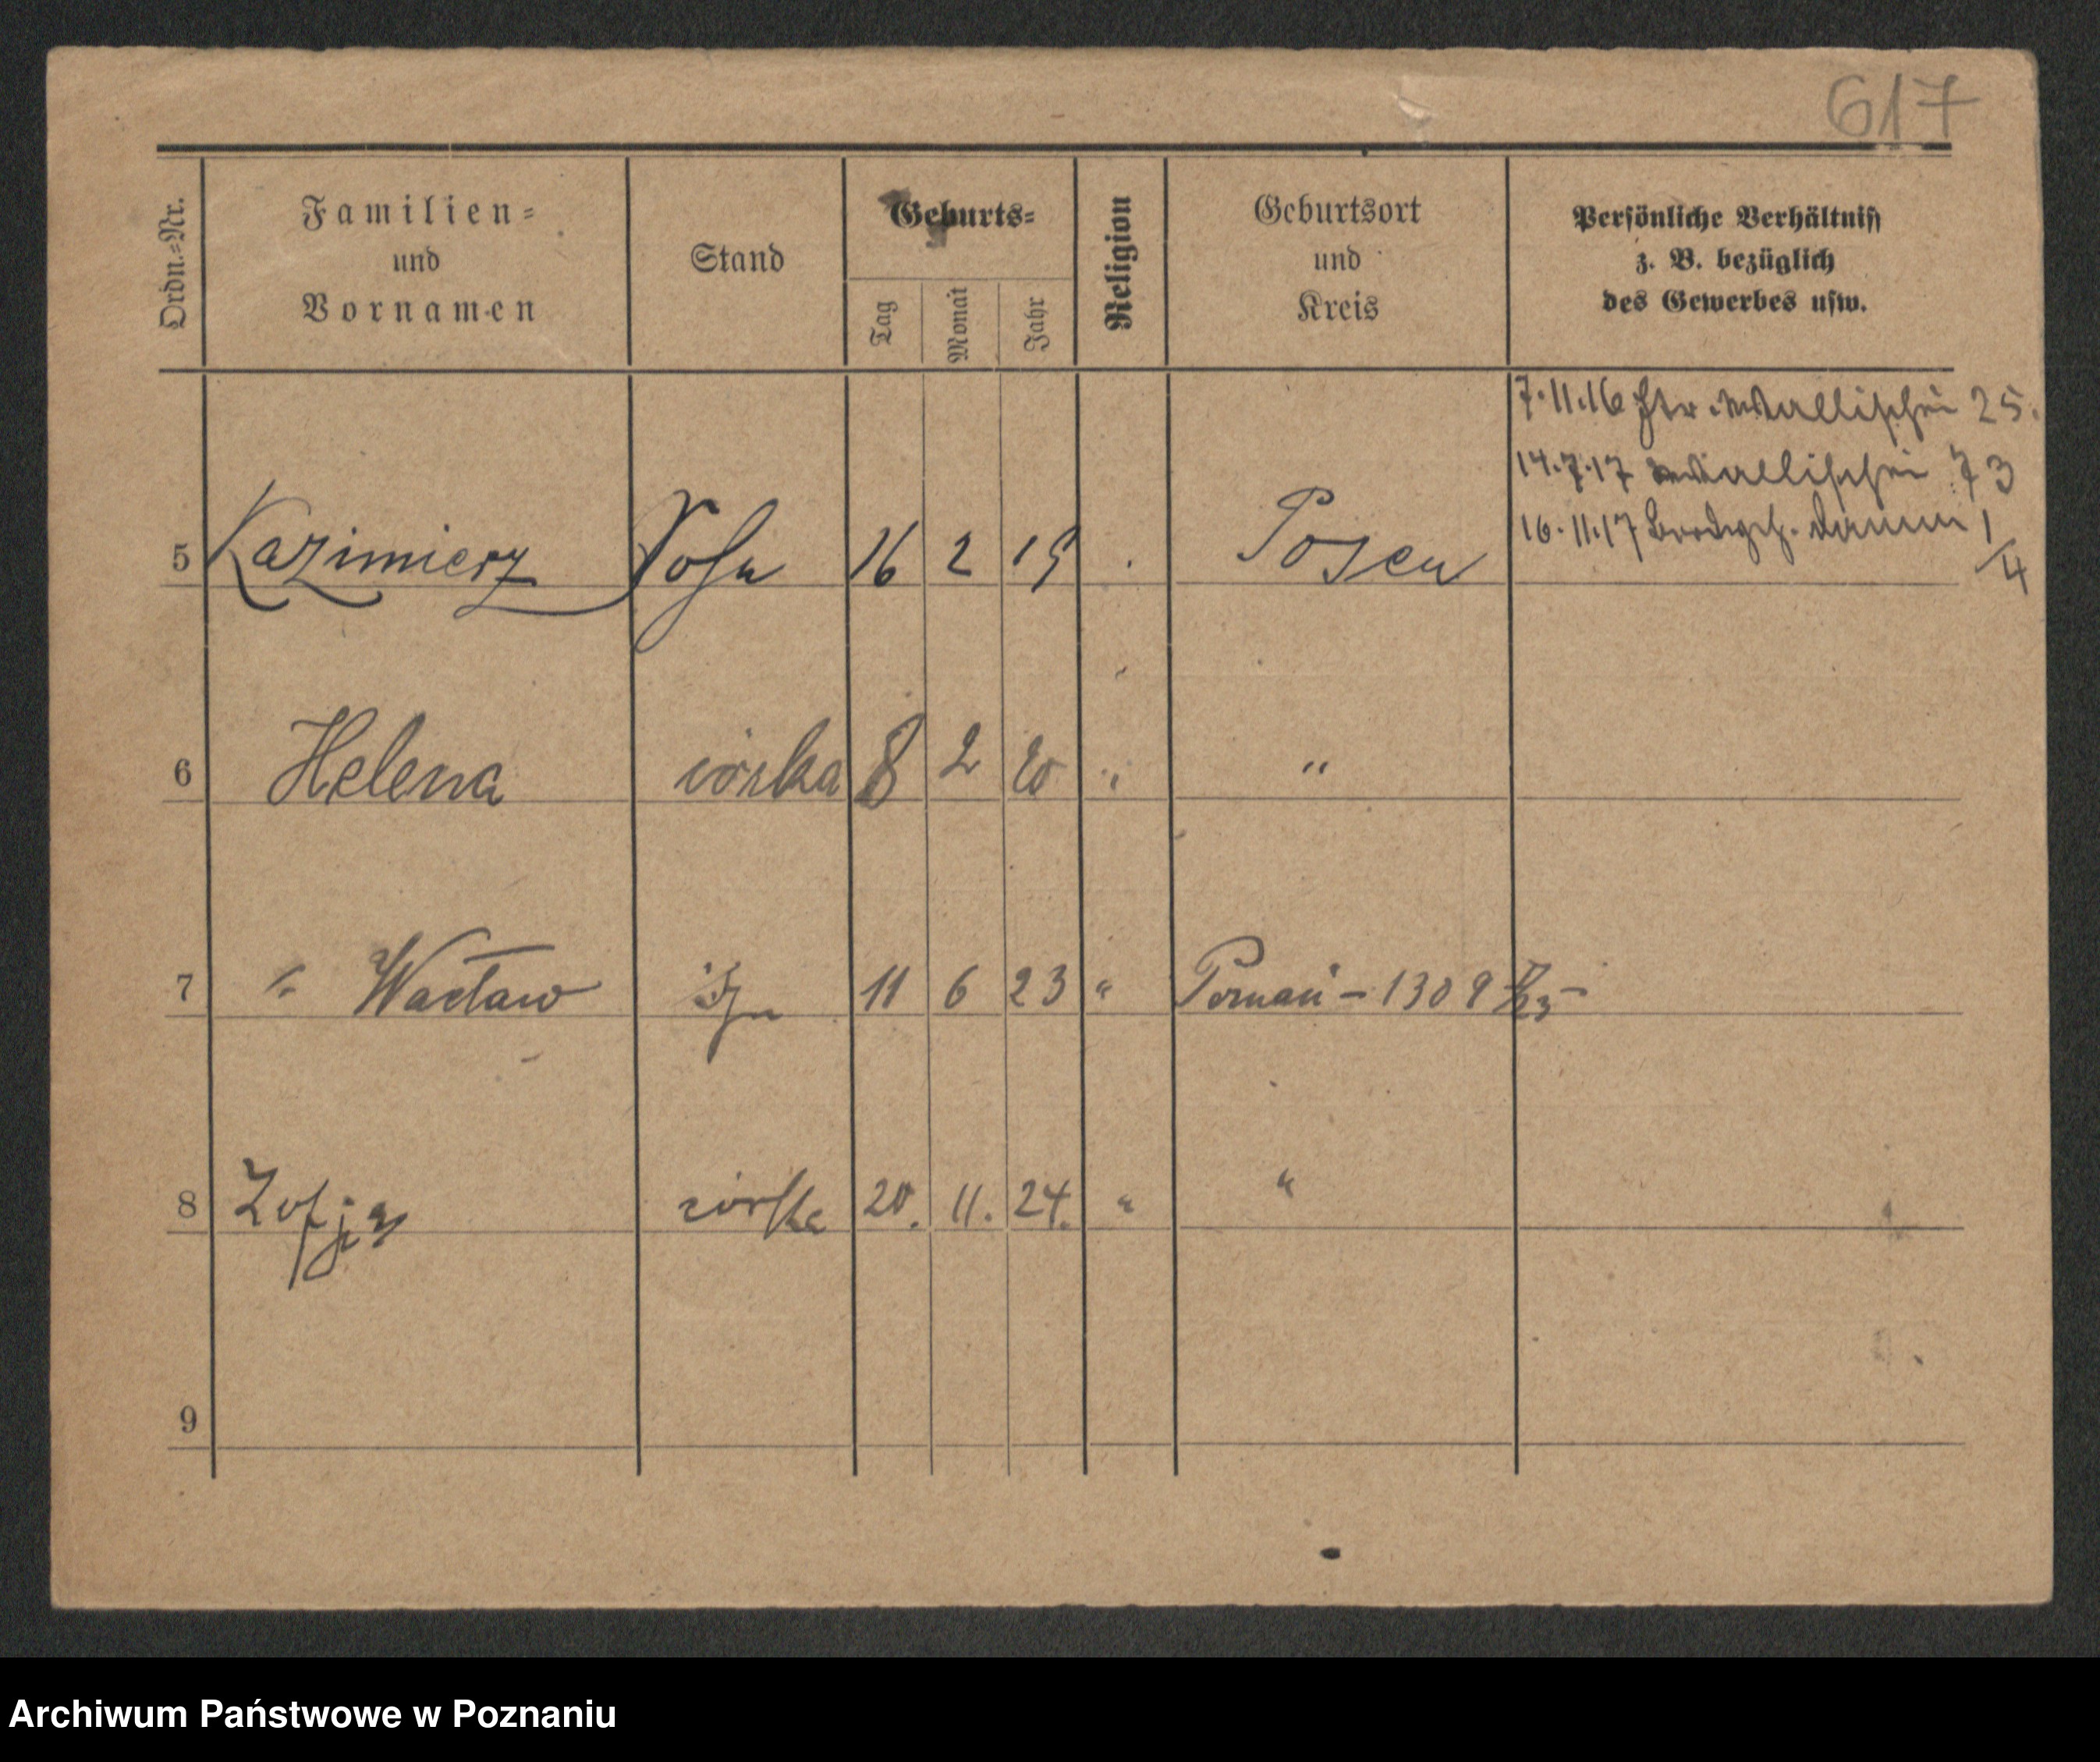 617
Ordn.=Nr.
Familien=
und
Vornamen
Stand
Geburts=
Tag
Monat
Jahr
Religion
Geburtsort
und
Kreis
Persönliche Verhältniss
z. B. bezüglich
des Gewerbes usw.
7.11.16 Wallischei 25.
14.7.17 Wallischei 73
16.11.17 damm 1/4
5 Kazimierz Sohn 16 2 19 Posen
6 Helena córka 8 2 20 " "
7 " Wacław Syn 11 6 23 " Poznań - 1309/23 -
8 Zofja córka 20. 11. 24. " "
9
Archiwum Państwowe w Poznaniu